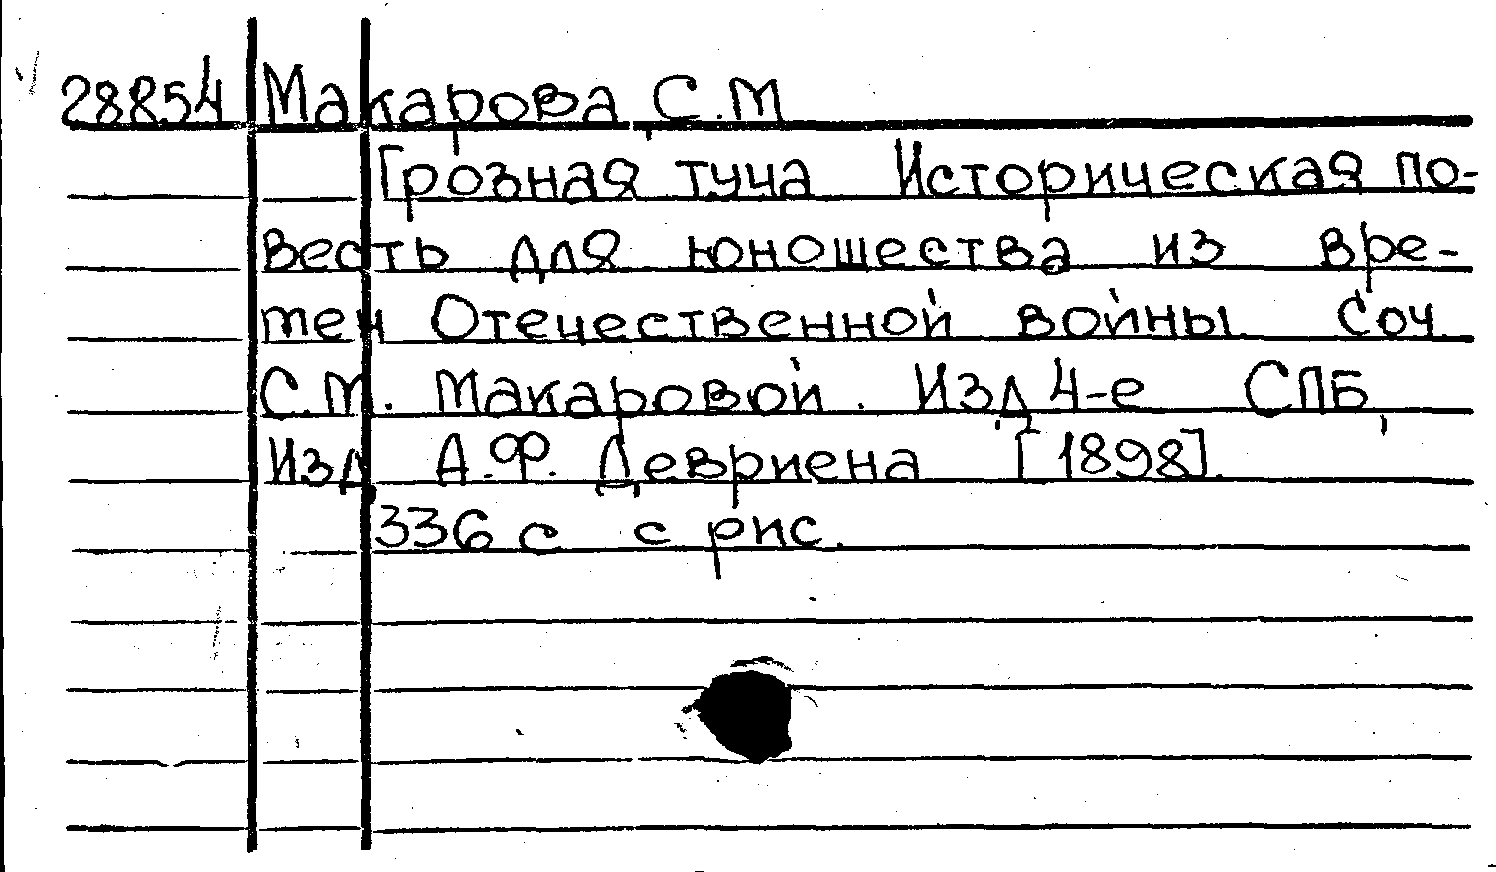 28854 Макарова, С.М
Грозная туча Историческая по-
весть для юношества из вре-
мен Отечественной войны. Соч.
С.М. Макаровой. Изд. 4-е СПБ,
Изд. А.Ф. Девриена [1898].
336 с с рис.